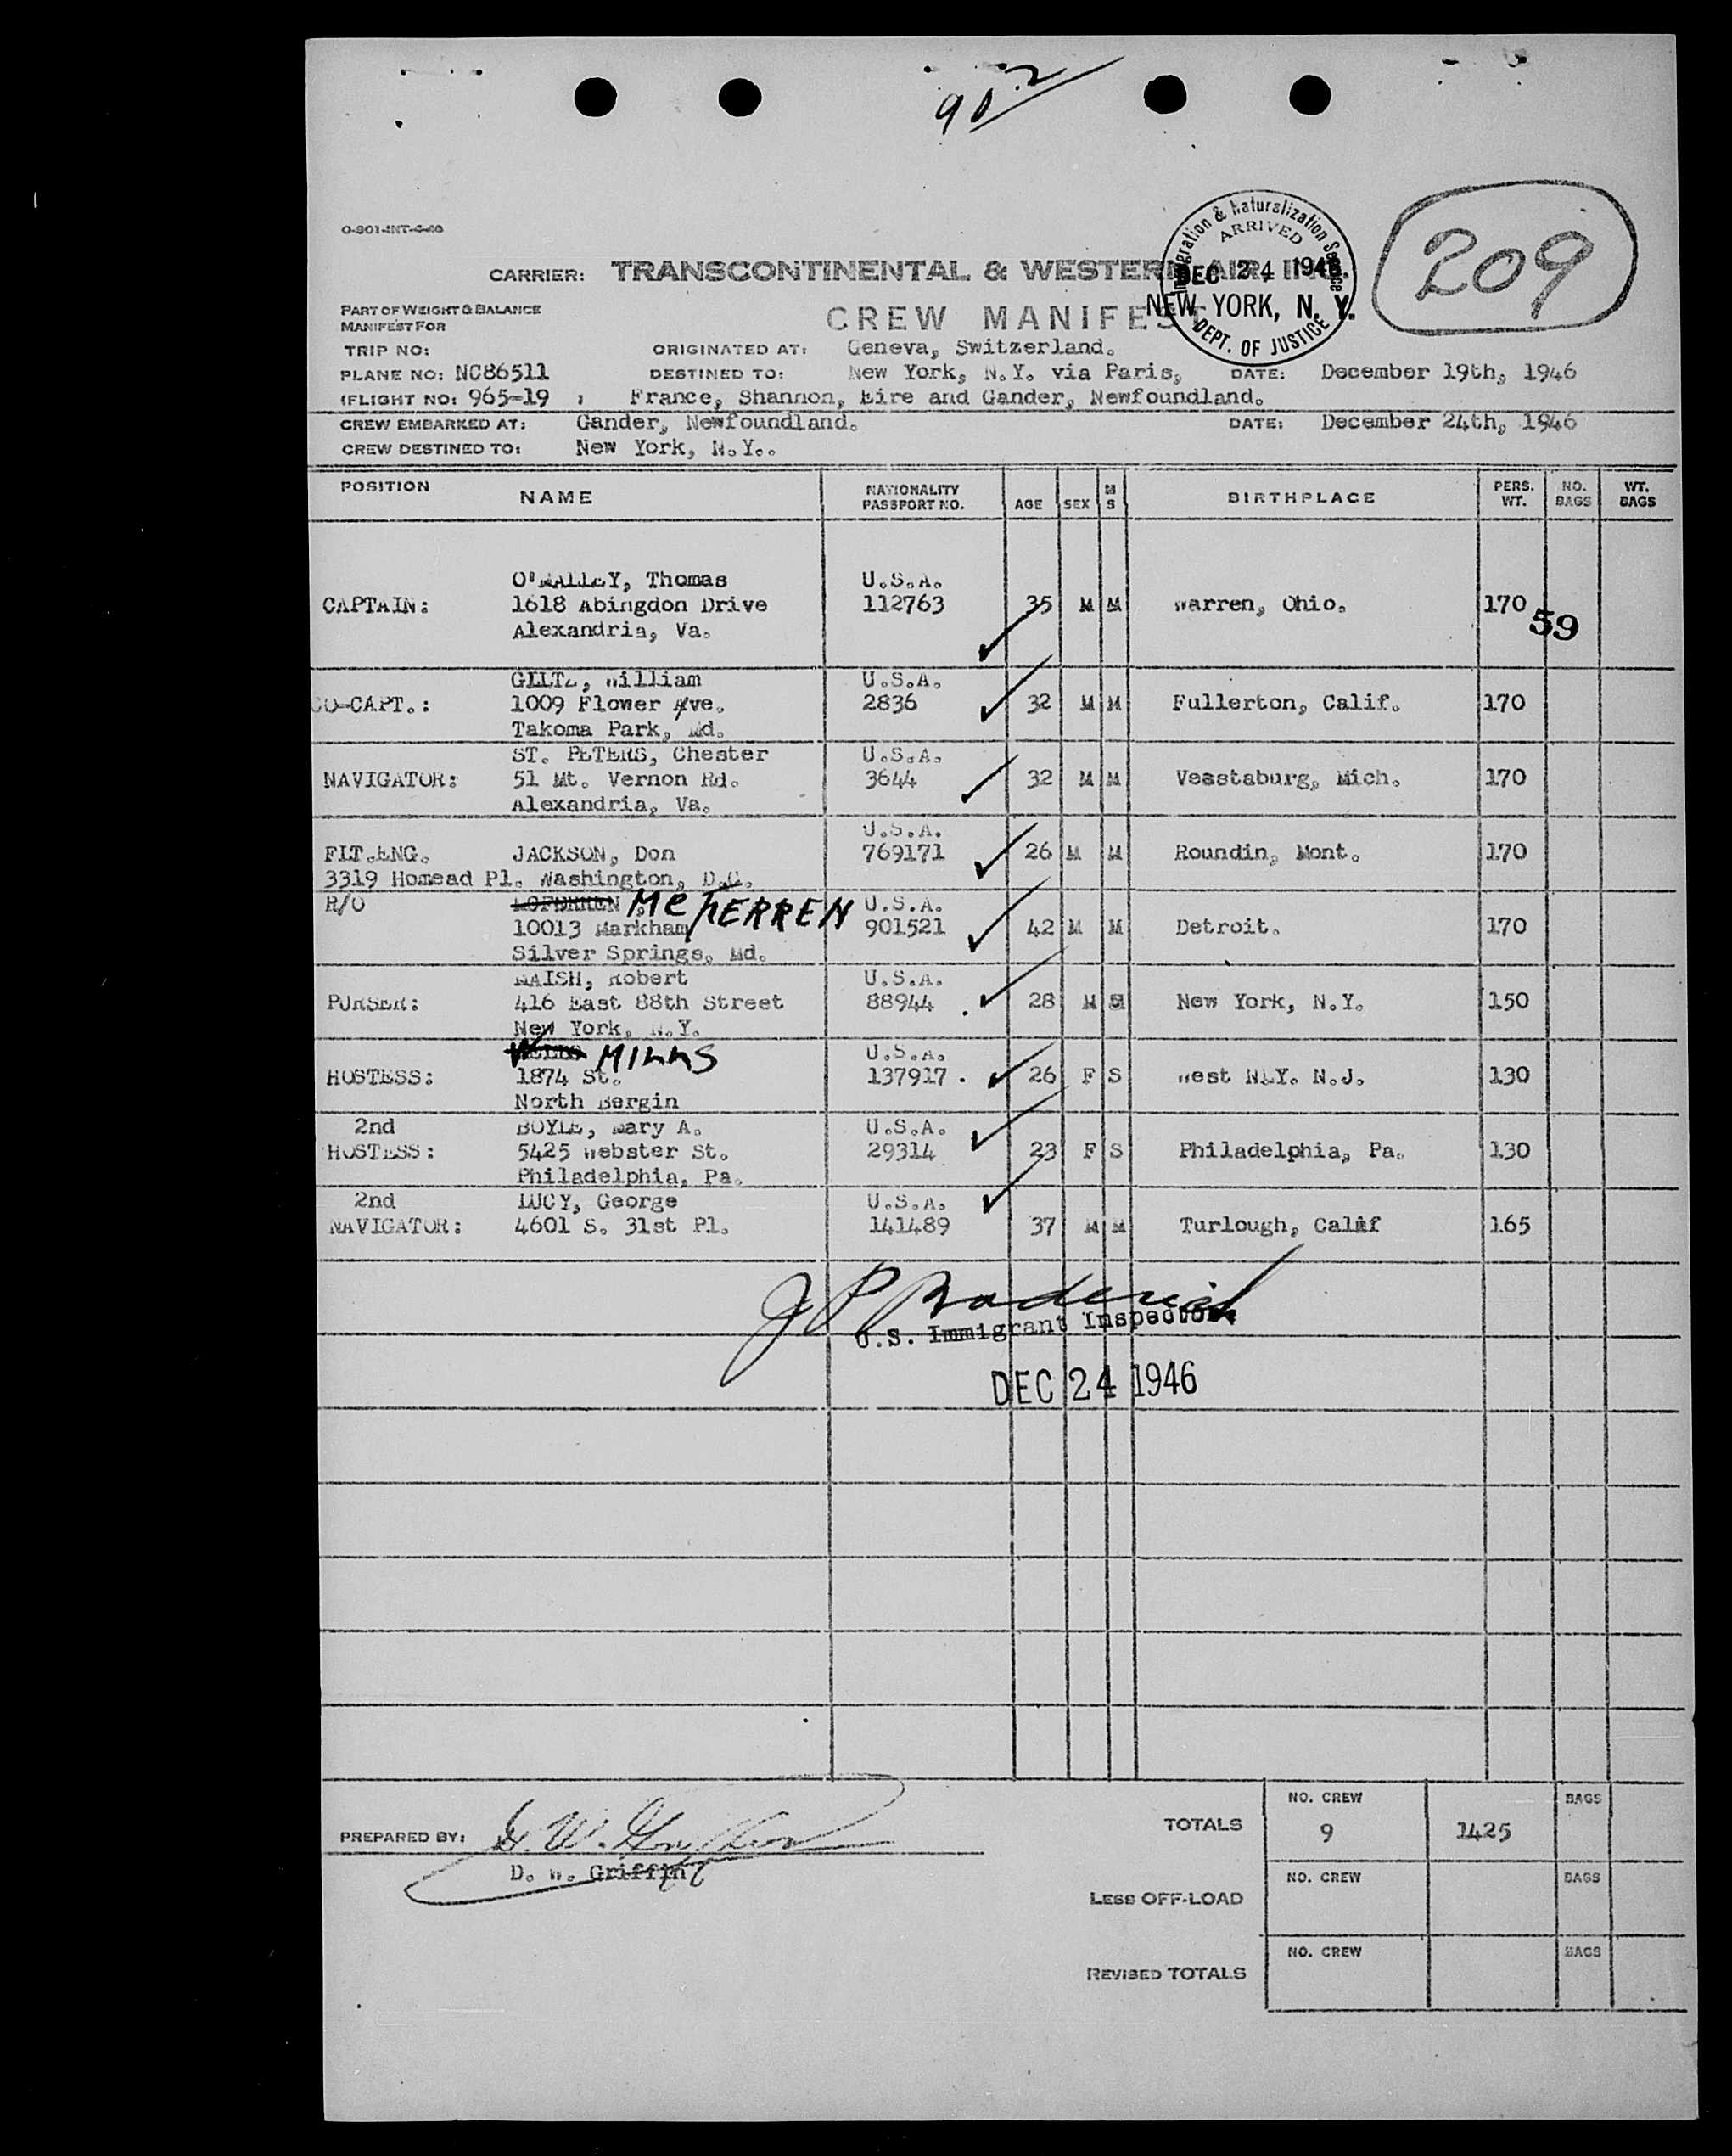 90.2
O-801-INT-4-46
Immigration & Naturalization Service
ARRIVED
DEC 24 1946
NEW YORK, N. Y.
DEPT. OF JUSTICE
209
CARRIER: TRANSCONTINENTAL & WESTERN AIR INC.
PART OF WEIGHT & BALANCE
MANIFEST FOR
CREW MANIFEST
TRIP NO: ORIGINATED AT: Geneva, Switzerland.
PLANE NO: NC86511 DESTINED TO: New York, N.Y. via Paris, DATE: December 19th, 1946
FLIGHT NO: 965-19 , France, Shannon, Eire and Gander, Newfoundland.
CREW EMBARKED AT: Gander, Newfoundland. DATE: December 24th, 1946
CREW DESTINED TO: New York, N.Y..
POSITION NAME NATIONALITY PASSPORT NO. AGE SEX M S BIRTHPLACE PERS. WT. NO. BAGS WT. BAGS
O'MALLEY, Thomas U.S.A.
CAPTAIN: 1618 Abingdon Drive 112763 35 M M Warren, Ohio. 170
Alexandria, Va.
59
GILTZ, William U.S.A.
CO-CAPT.: 1009 Flower Ave. 2836 32 M M Fullerton, Calif. 170
Takoma Park, Md.
ST. PETERS, Chester U.S.A.
NAVIGATOR: 51 Mt. Vernon Rd. 3644 32 M M Veastaburg, Mich. 170
Alexandria, Va.
U.S.A.
FLT.ENG. JACKSON, Don 769171 26 M M Roundin, Mont. 170
3319 Homead Pl. Washington, D.C.
R/O McFERREN U.S.A.
10013 Markham 901521 42 M M Detroit. 170
Silver Springs, Md.
MAISH, Robert U.S.A.
PURSER: 416 East 88th Street 88944 . 28 M S New York, N.Y. 150
New York, N.Y.
MILLS U.S.A.
HOSTESS: 1874 St. 137917 . 26 F S West N.Y. N.J. 130
North Bergin
2nd BOYLE, Mary A. U.S.A.
HOSTESS: 5425 Webster St. 29314 23 F S Philadelphia, Pa. 130
Philadelphia, Pa.
2nd LUCY, George U.S.A.
NAVIGATOR: 4601 S. 31st Pl. 141489 37 M M Turlough, Calif 165
J P Broderick
U.S. Immigrant Inspector
DEC 24 1946
NO. CREW BAGS
TOTALS 9 1425
PREPARED BY: D. W. Griffin
D. W. Griffin
NO. CREW BAGS
LESS OFF-LOAD
NO. CREW BAGS
REVISED TOTALS